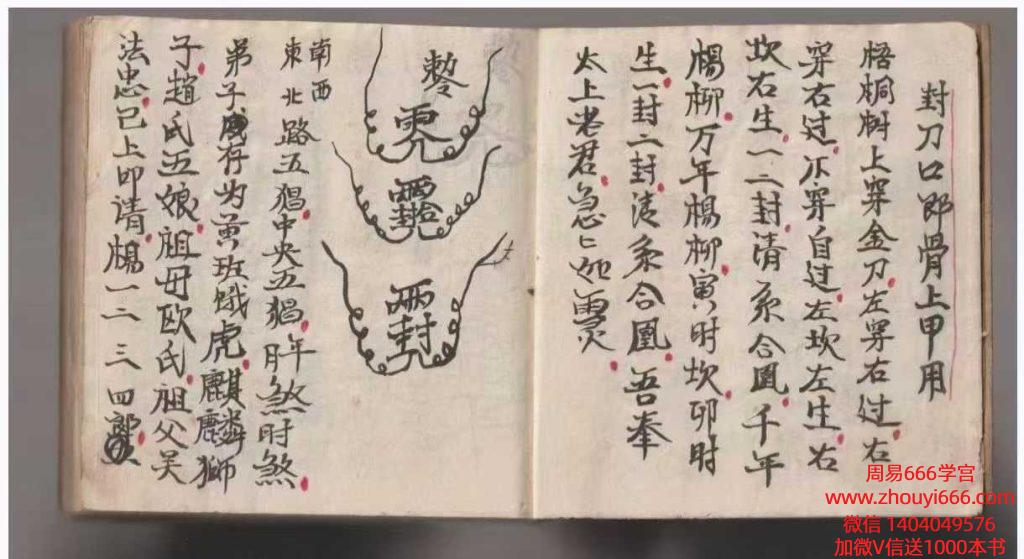 封刀口郎骨上甲用
梧桐树上穿金刀左穿右过右
穿右过不穿自过左坎左生右
坎右生一二封清系合凰千年
楊柳万年楊柳寅时坎卯时
生一封二封清系合凰吾奉
太上老君急
敕令
南西
東北路五猖中央五猖年煞时煞
弟子 存为黄班饿虎麒麟獅
子趙氏五娘祖母欧氏祖父吴
法忠已上叩请楊一二三四郎
周易666学宫
www.zhouyi666.com
微信 1404049576
加微V信送1000本书